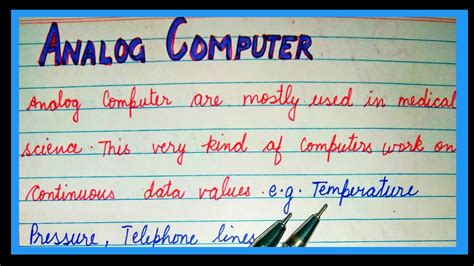 ANALOG COMPUTER
Analog Computer are mostly used in medical
science. This very kind of computers work on
continuous data values. e.g. Temperature
Pressure, Telephone lines